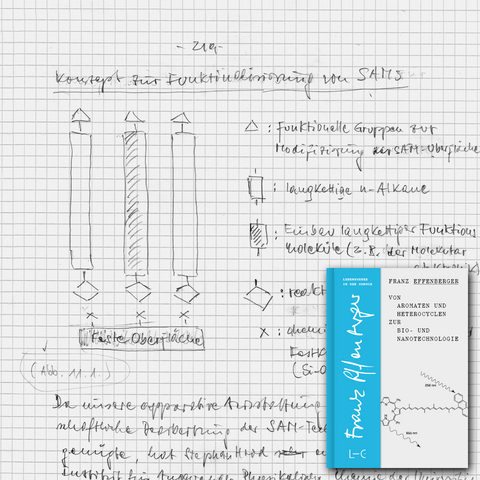 - 219 -
Konzept zur Funktionalisierung von SAMs
△ : Funktionelle Gruppen zur
Modifizierung der SAM-Oberfläche
: langkettige n-Alkane
: Einbau langkettiger Funktions
moleküle (z.B. der Molekular
: reakt
x : chemi
Festk
(Si-O
x x x
Feste Oberfläche
(Abb. 11.1.)
Da unsere apparative Ausstattung
schaftliche Bearbeitung der SAM-Tech
genügte, hat Stephan
Institut für Angewandte Physikalische Chemie der Universit
LEBENSWERKE
IN DER CHEMIE
Franz Effenberger
L-C
FRANZ EFFENBERGER
VON
AROMATEN UND
HETEROCYCLEN
ZUR
BIO- UND
NANOTECHNOLOGIE